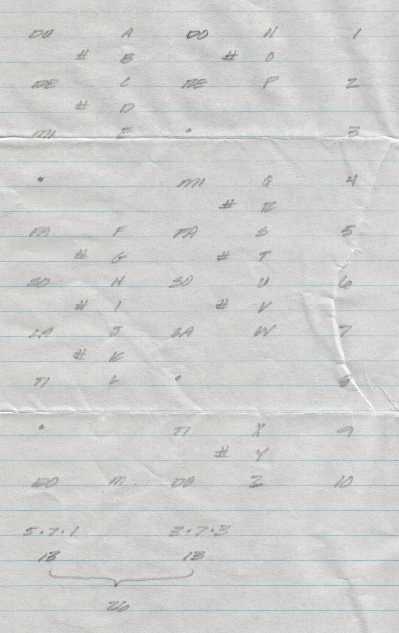 DO A DO N 1
# B # O
RE C RE P 2
# D
MI E • 3
• MI Q 4
# R
FA F FA S 5
# G # T
SO H SO U 6
# I # V
LA J LA W 7
# K
TI L • 8
• TI X 9
# Y
DO M DO Z 10
5•7•1 3•7•3
13 13
26